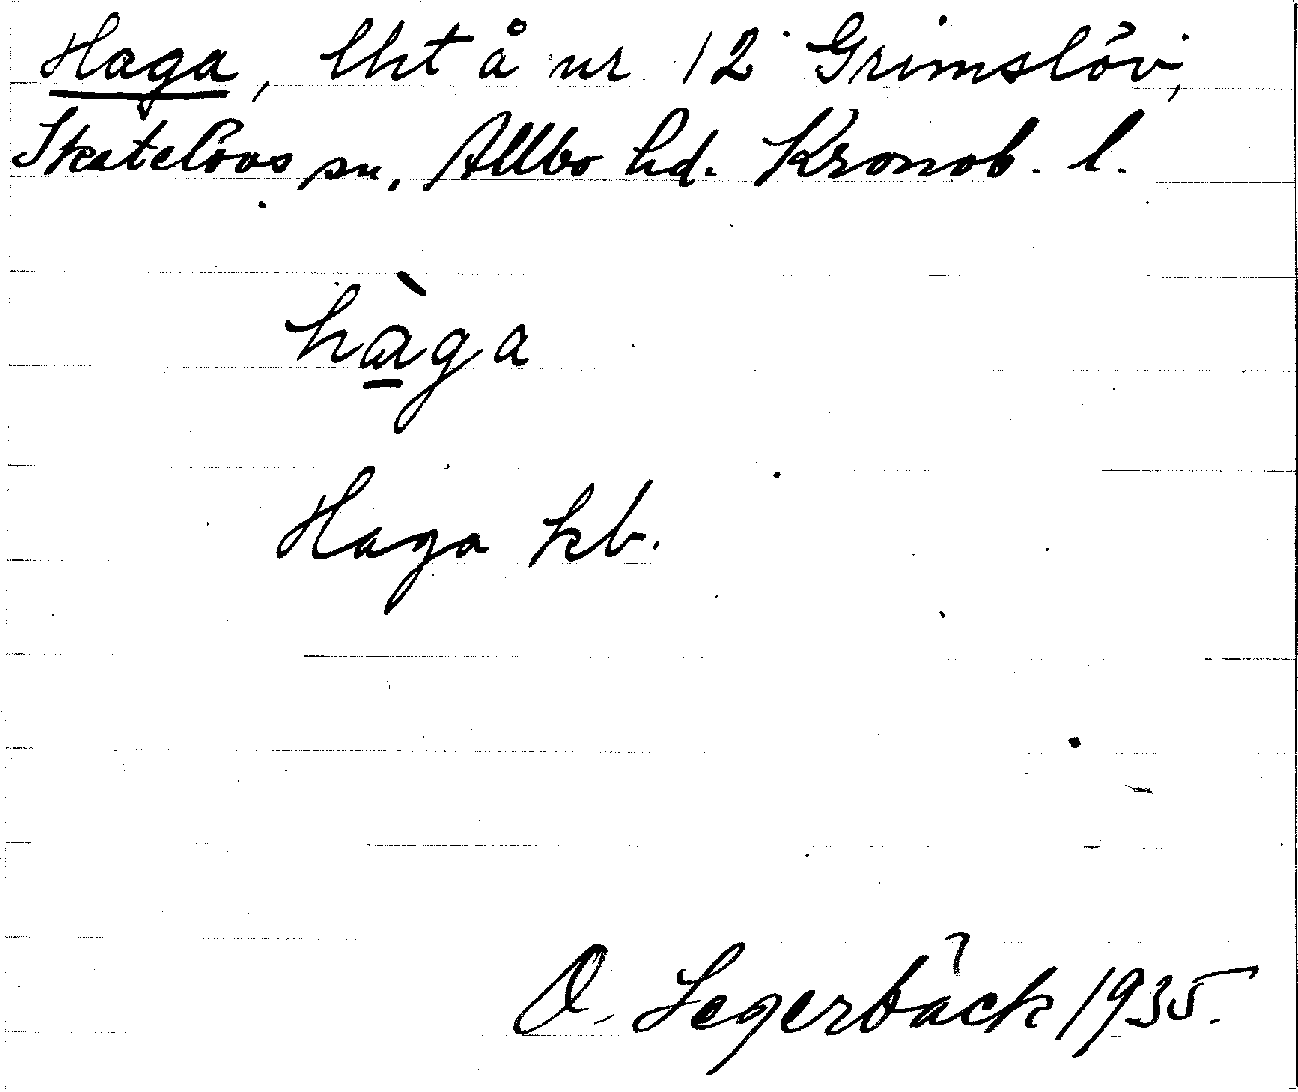 Haga, lht å nr 12 Grimslöv,
Skatelövs sn, Allbo hd. Kronob. l.
hàga
Haga kb.
O. Legerbäck 1935.